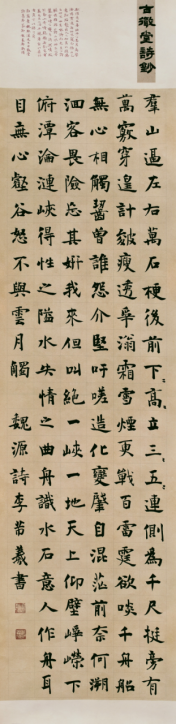 古微堂詩鈔
羣山逼左右萬石梗後前下〻高〻立三〻五〻連側為千尺梃旁有
萬竅穿遑計皴瘦透滃霜雪煙更戰百雷霆欲啖千舟船
無心相觸齧曾誰怨介堅吁嗟造化變肇自混茫前奈何溯
洄客畏險忘其妍我來但叫絕一峽一地天上仰壁崢嶸下
俯潭淪漣峽得性之隘水失情之曲舟識水石意人作舟耳
目無心谿谷怒不與雲月觸 魏源詩李羲書